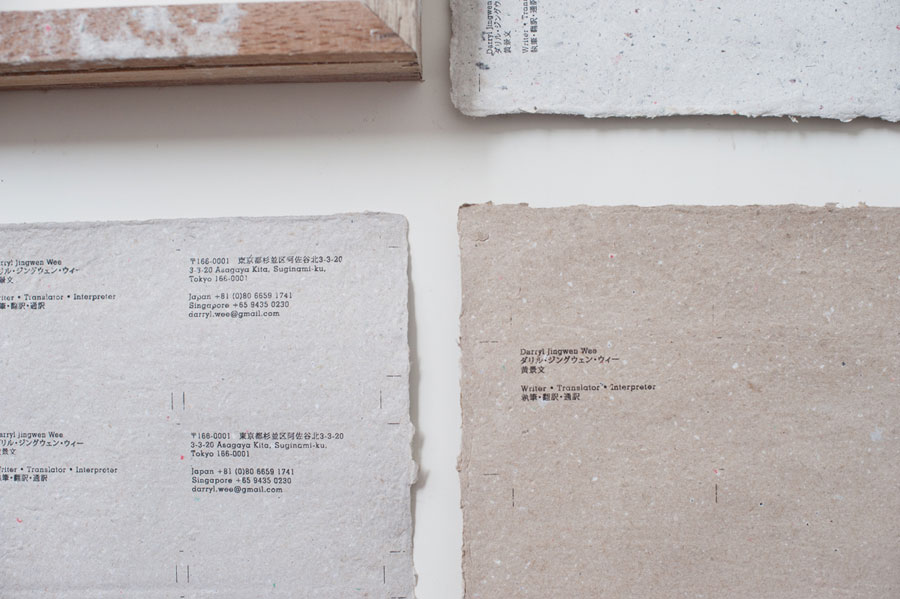 Darryl Jingwen
ダリル・ジングウ
黄景文
Writer • Trans
執筆・翻訳・通訳
arryl Jingwen Wee
リル・ジングウェン・ウィー
景文
riter • Translator • Interpreter
筆・翻訳・通訳
〒166-0001 東京都杉並区阿佐谷北3-3-20
3-3-20 Asagaya Kita, Suginami-ku,
Tokyo 166-0001
Japan +81 (0)80 6659 1741
Singapore +65 9435 0230
darryl.wee@gmail.com
arryl Jingwen Wee
リル・ジングウェン・ウィー
景文
riter • Translator • Interpreter
筆・翻訳・通訳
〒166-0001 東京都杉並区阿佐谷北3-3-20
3-3-20 Asagaya Kita, Suginami-ku,
Tokyo 166-0001
Japan +81 (0)80 6659 1741
Singapore +65 9435 0230
darryl.wee@gmail.com
Darryl Jingwen Wee
ダリル・ジングウェン・ウィー
黄景文
Writer • Translator • Interpreter
執筆・翻訳・通訳